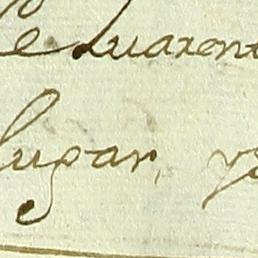 e quarent
lugar, y